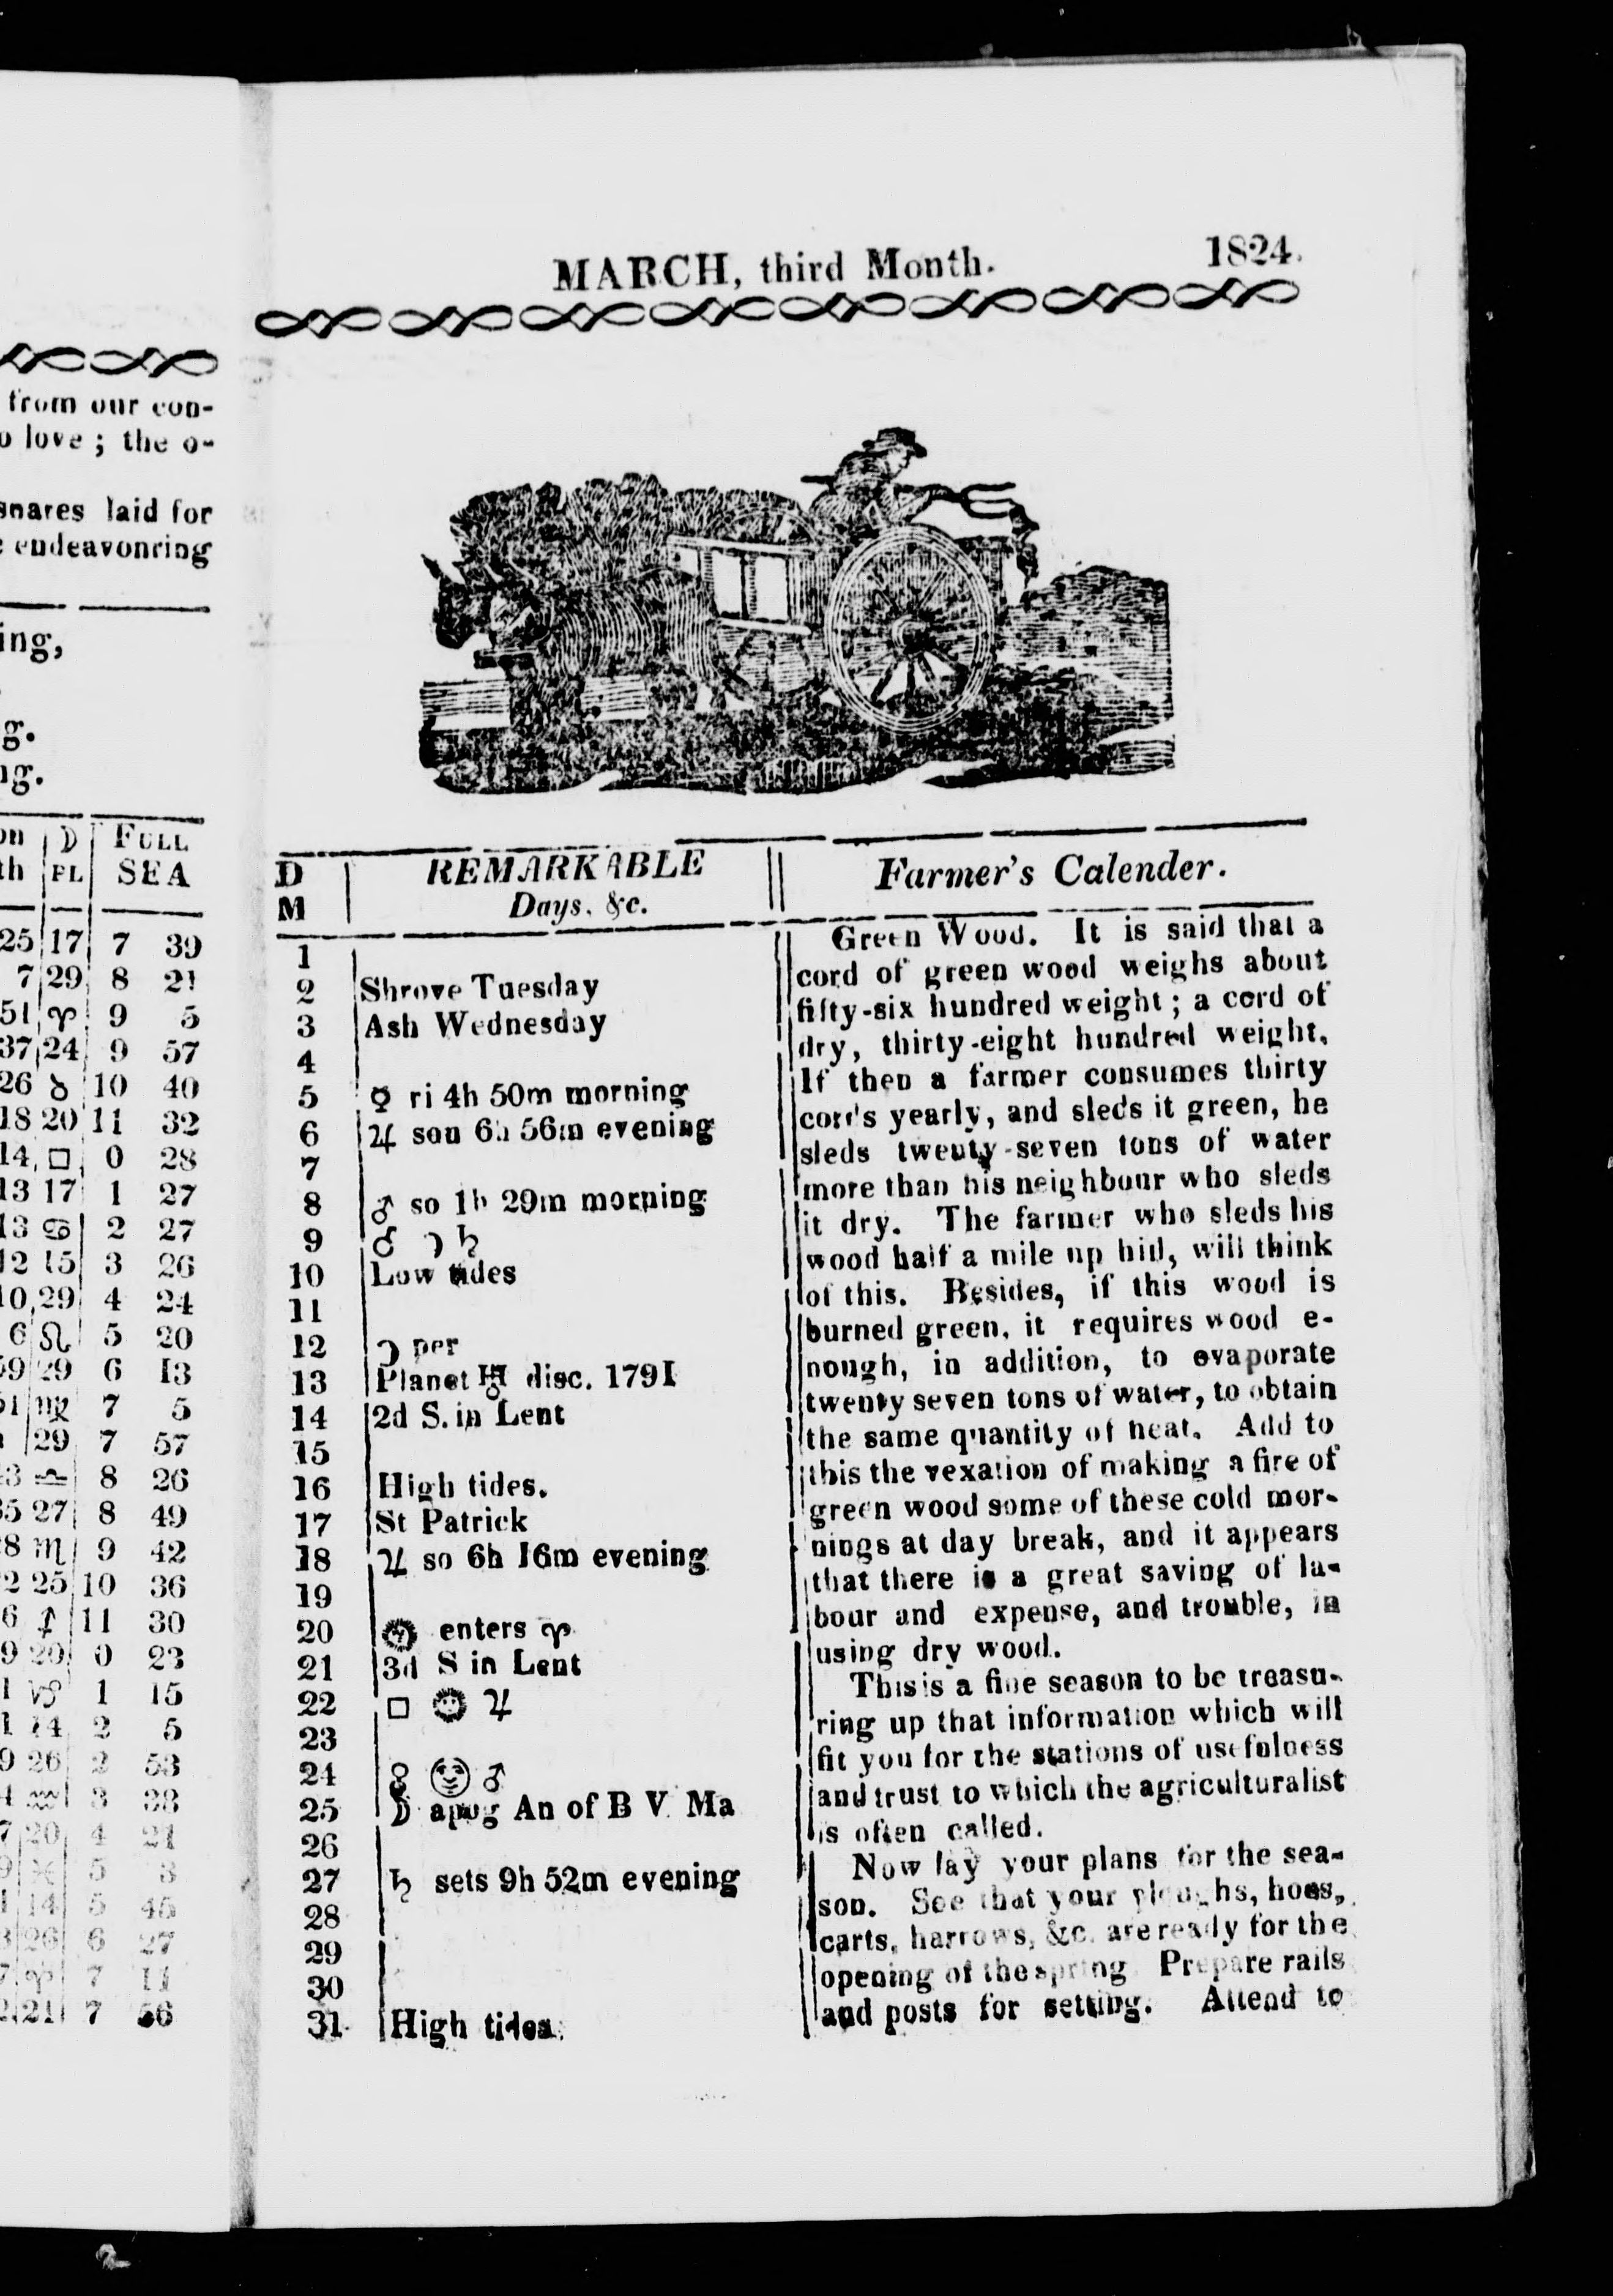 from our con-
o love ; the o-
snares laid for
endeavonring
ing,
g.
ng.
on ☽ FULL
th PL SEA
25 17 7 39
7 29 8 21
51 ♈ 9 5
37 24 9 57
26 ♉ 10 40
18 20 11 32
14 □ 0 28
13 17 1 27
13 ♋ 2 27
12 15 3 26
10 29 4 24
6 ♌ 5 20
59 29 6 13
51 ♍ 7 5
29 7 57
3 ♎ 8 26
35 27 8 49
8 ♏ 9 42
2 25 10 36
6 ♐ 11 30
9 20 0 23
1 ♑ 1 15
1 14 2 5
9 26 2 53
4 ♒ 3 38
7 20 4 21
9 ♓ 5 3
1 14 5 45
3 26 6 27
7 ♈ 7 11
2 21 7 56
MARCH, third Month. 1824.
D REMARKABLE
M Days, &c.
1
2 Shrove Tuesday
3 Ash Wednesday
4
5 ☿ ri 4h 50m morning
6 ♃ sou 6h 56m evening
7
8 ♂ so 1h 29m morning
9 ☌ ☽ ♄
10 Low tides
11
12 ☽ per
13 Planet ♅ disc. 1791
14 2d S. in Lent
15
16 High tides.
17 St Patrick
18 ♃ so 6h 16m evening
19
20 ☉ enters ♈
21 3d S in Lent
22 □ ☉ ♃
23
24 ☍ ☉ ♂
25 ☽ apog An of B V Ma
26
27 ♄ sets 9h 52m evening
28
29
30
31 High tides.
Farmer's Calender.
Green Wood. It is said that a
cord of green wood weighs about
fifty-six hundred weight ; a cord of
dry, thirty-eight hundred weight.
If then a farmer consumes thirty
cords yearly, and sleds it green, he
sleds twenty-seven tons of water
more than his neighbour who sleds
it dry. The farmer who sleds his
wood half a mile up hill, will think
of this. Besides, if this wood is
burned green, it requires wood e-
nough, in addition, to evaporate
twenty seven tons of water, to obtain
the same quantity of heat. Add to
this the vexation of making a fire of
green wood some of these cold mor-
nings at day break, and it appears
that there is a great saving of la-
bour and expense, and trouble, in
using dry wood.
This is a fine season to be treasu-
ring up that information which will
fit you for the stations of usefulness
and trust to which the agriculturalist
is often called.
Now lay your plans for the sea-
son. See that your ploughs, hoes,
carts, harrows, &c. are ready for the
opening of the spring Prepare rails
and posts for setting. Attend to